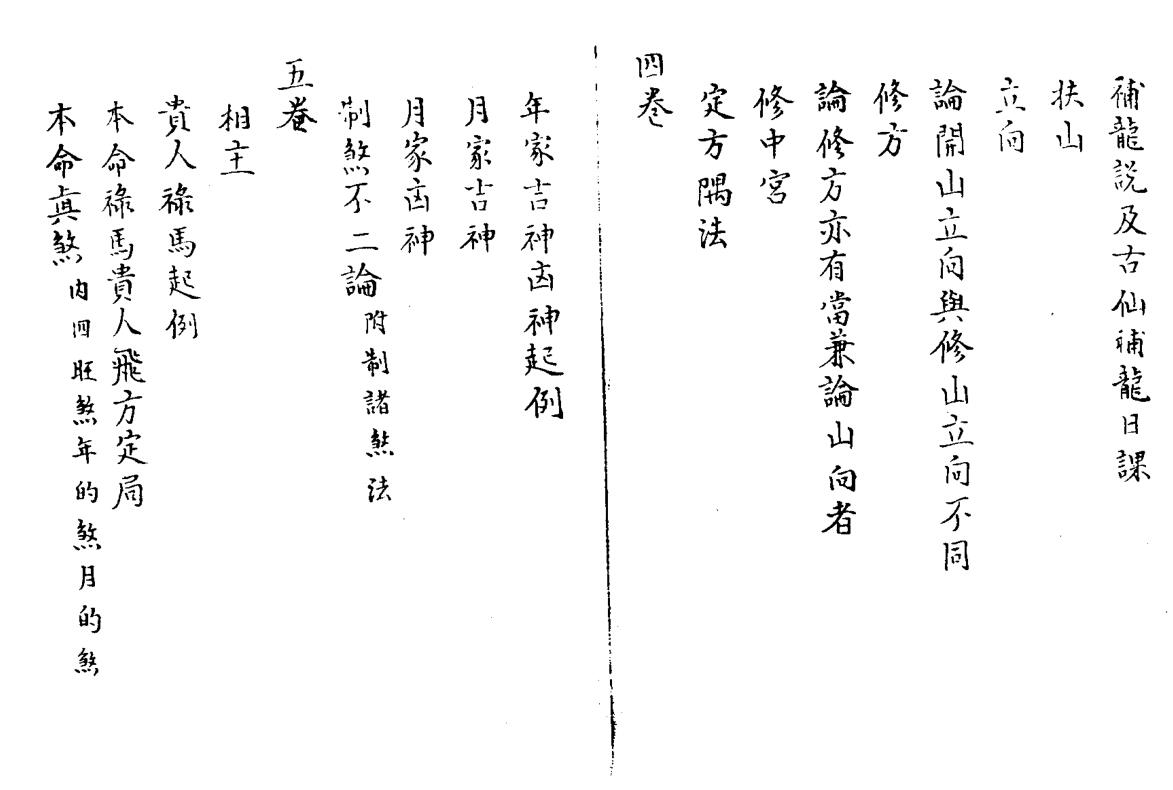 補龍説及古仙補龍日課
扶山
立向
論開山立向與修山立向不同
修方
論修方亦有當兼論山向者
修中宮
定方隅法
四卷
年家吉神凶神起例
月家吉神
月家凶神
制煞不二論 附制諸煞法
五卷
相主
貴人祿馬起例
本命祿馬貴人飛方定局
本命真煞 内四旺煞年的煞月的煞